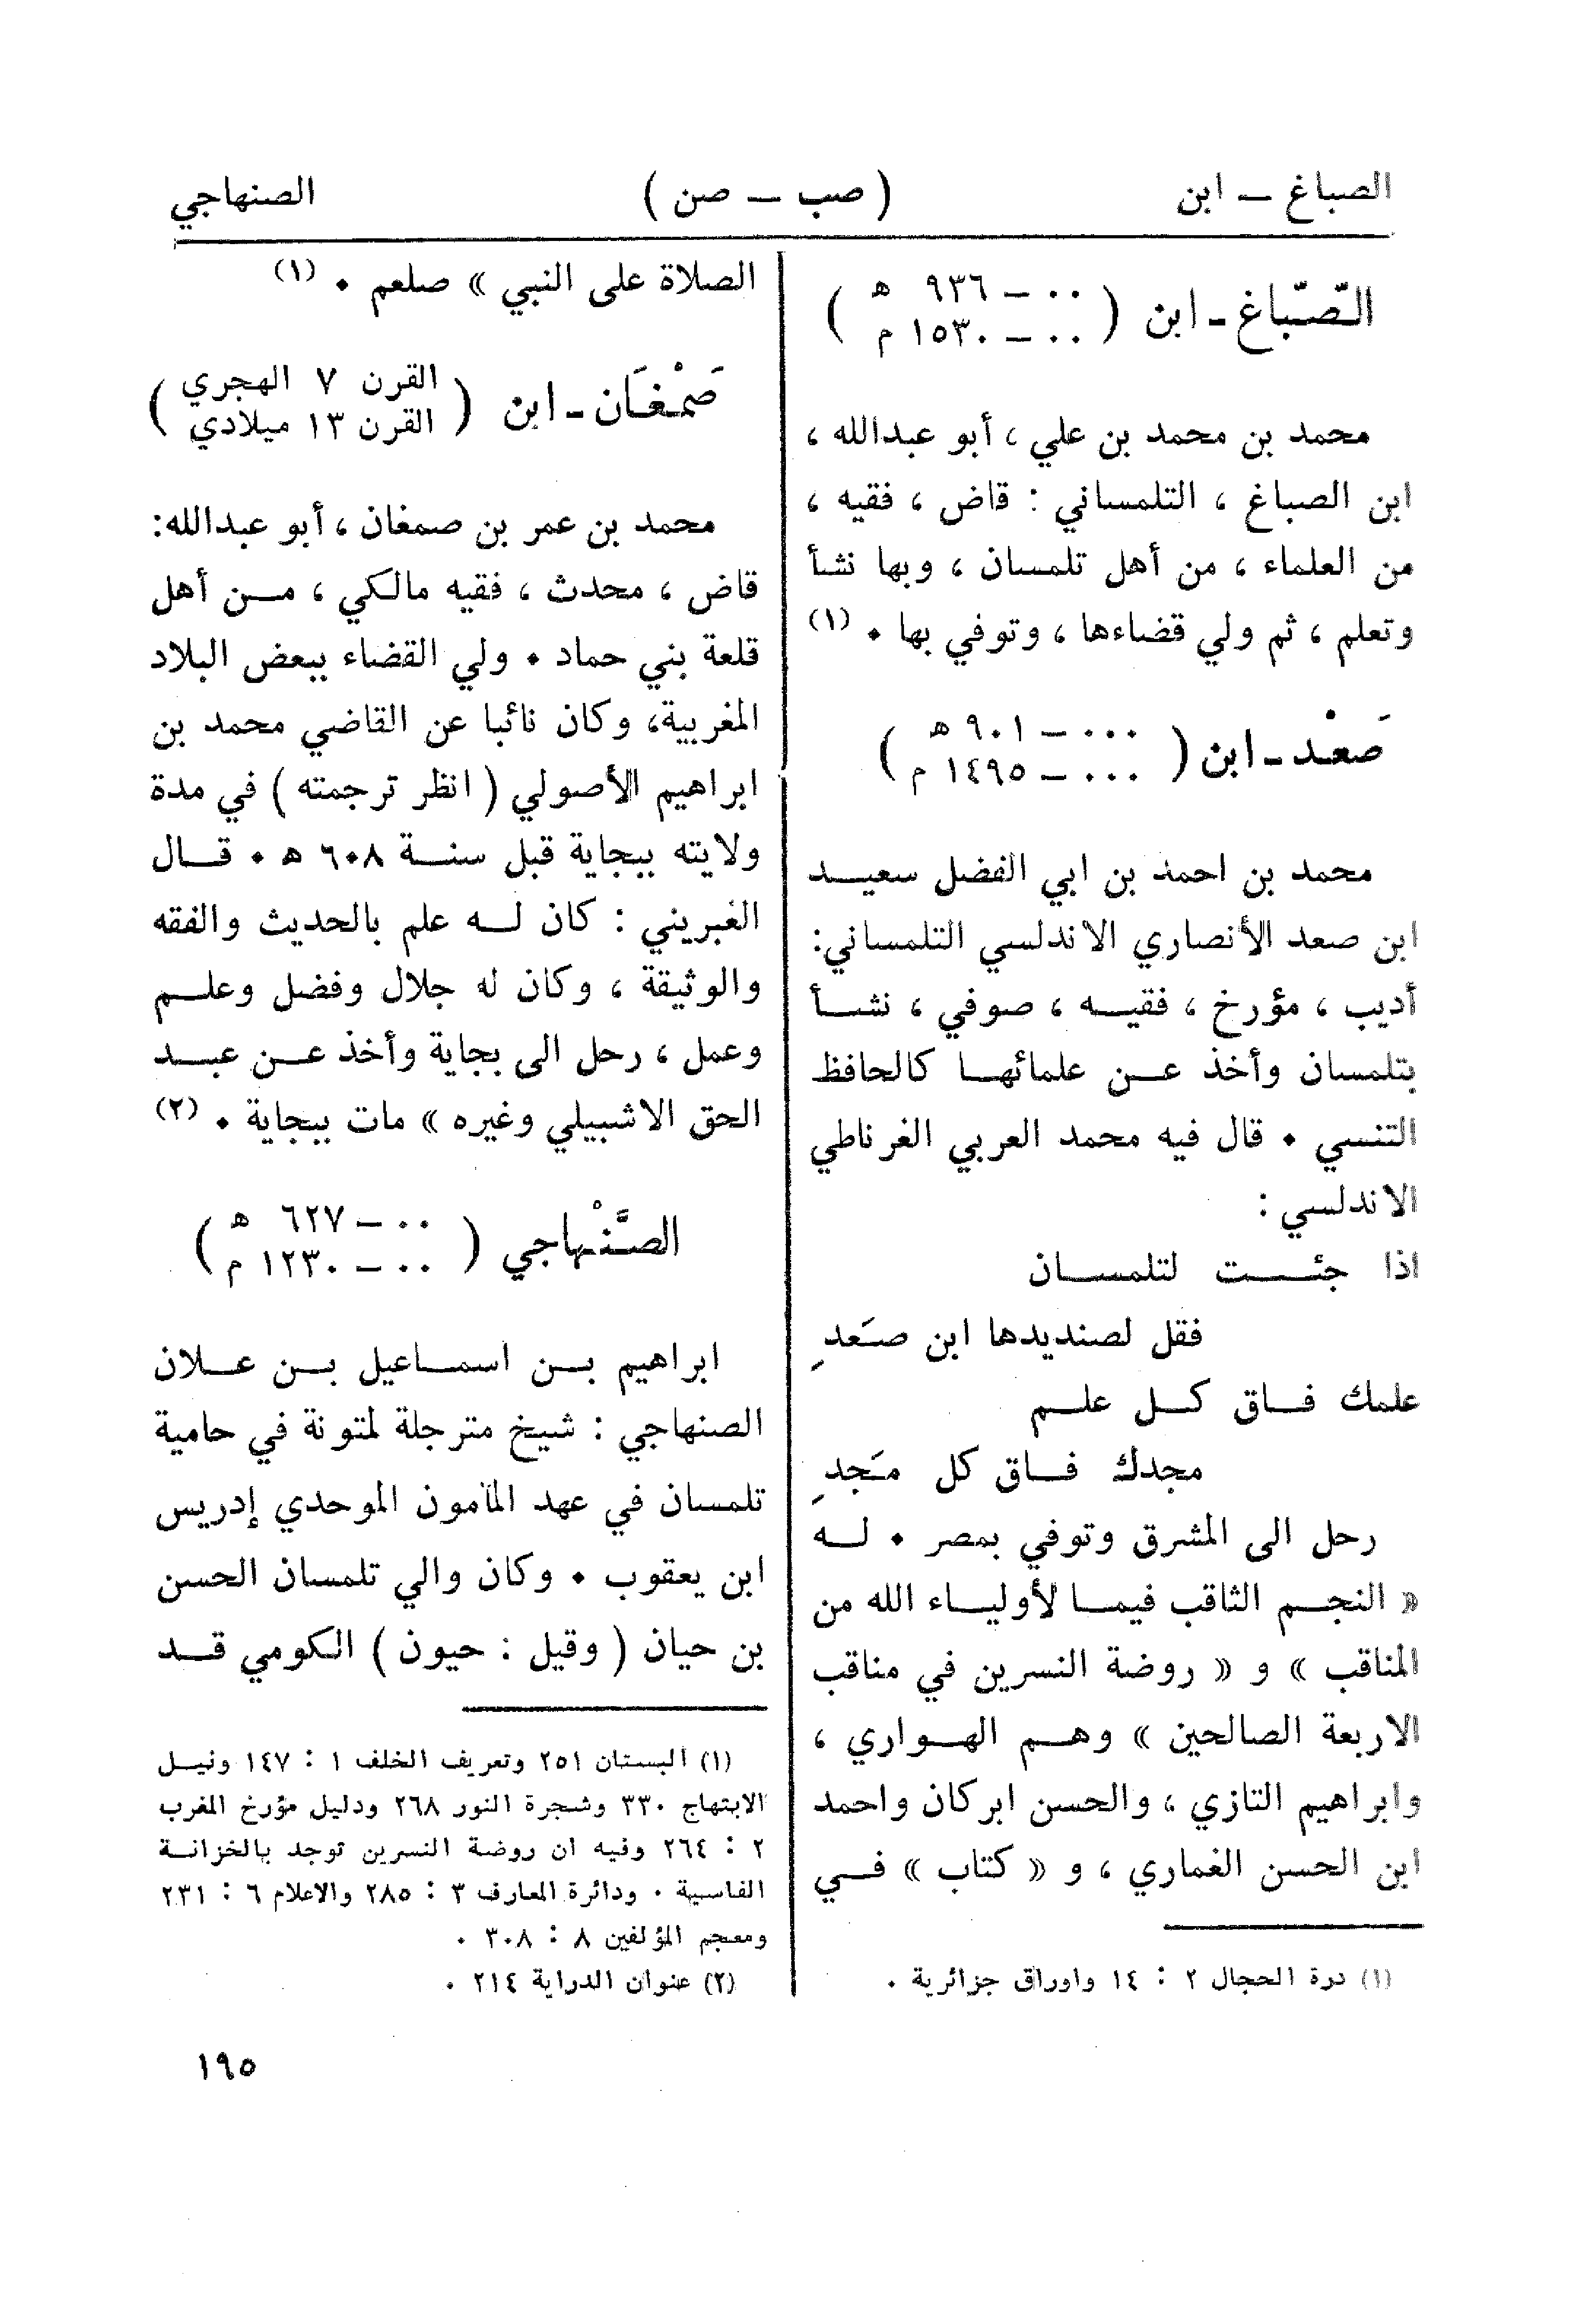 الصباغ — ابن ( صب — صن ) الصنهاجي
الصّبّاغ - ابن ( ٠٠ — ٩٣٦ هـ
٠٠ — ١٥٣٠ م )
محمد بن محمد بن علي ، أبو عبدالله ،
ابن الصباغ ، التلمساني : قاض ، فقيه ،
من العلماء ، من أهل تلمسان ، وبها نشأ
وتعلم ، ثم ولي قضاءها ، وتوفي بها ٠ (١)
صَعْد - ابن ( ٠٠٠ — ٩٠١ هـ
٠٠٠ — ١٤٩٥ م )
محمد بن احمد بن ابي الفضل سعيد
ابن صعد الأنصاري الاندلسي التلمساني:
أديب ، مؤرخ ، فقيه ، صوفي ، نشأ
بتلمسان وأخذ عن علمائها كالحافظ
التنسي ٠ قال فيه محمد العربي الغرناطي
الاندلسي :
اذا جئت لتلمسان
فقل لصنديدها ابن صَعدِ
علمك فاق كل علم
مجدك فاق كل مَجدِ
رحل الى المشرق وتوفي بمصر ٠ له
« النجم الثاقب فيما لأولياء الله من
المناقب » و « روضة النسرين في مناقب
الاربعة الصالحين » وهم الهواري ،
وابراهيم التازي ، والحسن ابركان واحمد
ابن الحسن الغماري ، و « كتاب » في
(١) درة الحجال ٢ : ١٤ واوراق جزائرية ٠
الصلاة على النبي » صلعم ٠ (١)
صَمْغَان - ابن ( القرن ٧ الهجري
القرن ١٣ ميلادي )
محمد بن عمر بن صمغان ، أبو عبدالله:
قاض ، محدث ، فقيه مالكي ، من أهل
قلعة بني حماد ٠ ولي القضاء ببعض البلاد
المغربية، وكان نائبا عن القاضي محمد بن
ابراهيم الأصولي ( انظر ترجمته ) في مدة
ولايته ببجاية قبل سنة ٦٠٨ هـ ٠ قال
الغبريني : كان له علم بالحديث والفقه
والوثيقة ، وكان له جلال وفضل وعلم
وعمل ، رحل الى بجاية وأخذ عن عبد
الحق الاشبيلي وغيره » مات ببجاية ٠ (٢)
الصَّنْهاجي ( ٠٠ — ٦٢٧ هـ
٠٠ — ١٢٣٠ م )
ابراهيم بن اسماعيل بن علان
الصنهاجي : شيخ مترجلة لمتونة في حامية
تلمسان في عهد المأمون الموحدي إدريس
ابن يعقوب ٠ وكان والي تلمسان الحسن
بن حيان ( وقيل : حيون ) الكومي قد
(١) البستان ٢٥١ وتعريف الخلف ١ : ١٤٧ ونيل
الابتهاج ٣٣٠ وشجرة النور ٢٦٨ ودليل مؤرخ المغرب
٢ : ٢٦٤ وفيه ان روضة النسرين توجد بالخزانة
الفاسية ٠ ودائرة المعارف ٣ : ٢٨٥ والاعلام ٦ : ٢٣١
ومعجم المؤلفين ٨ : ٣٠٨ ٠
(٢) عنوان الدراية ٢١٤ ٠
١٩٥